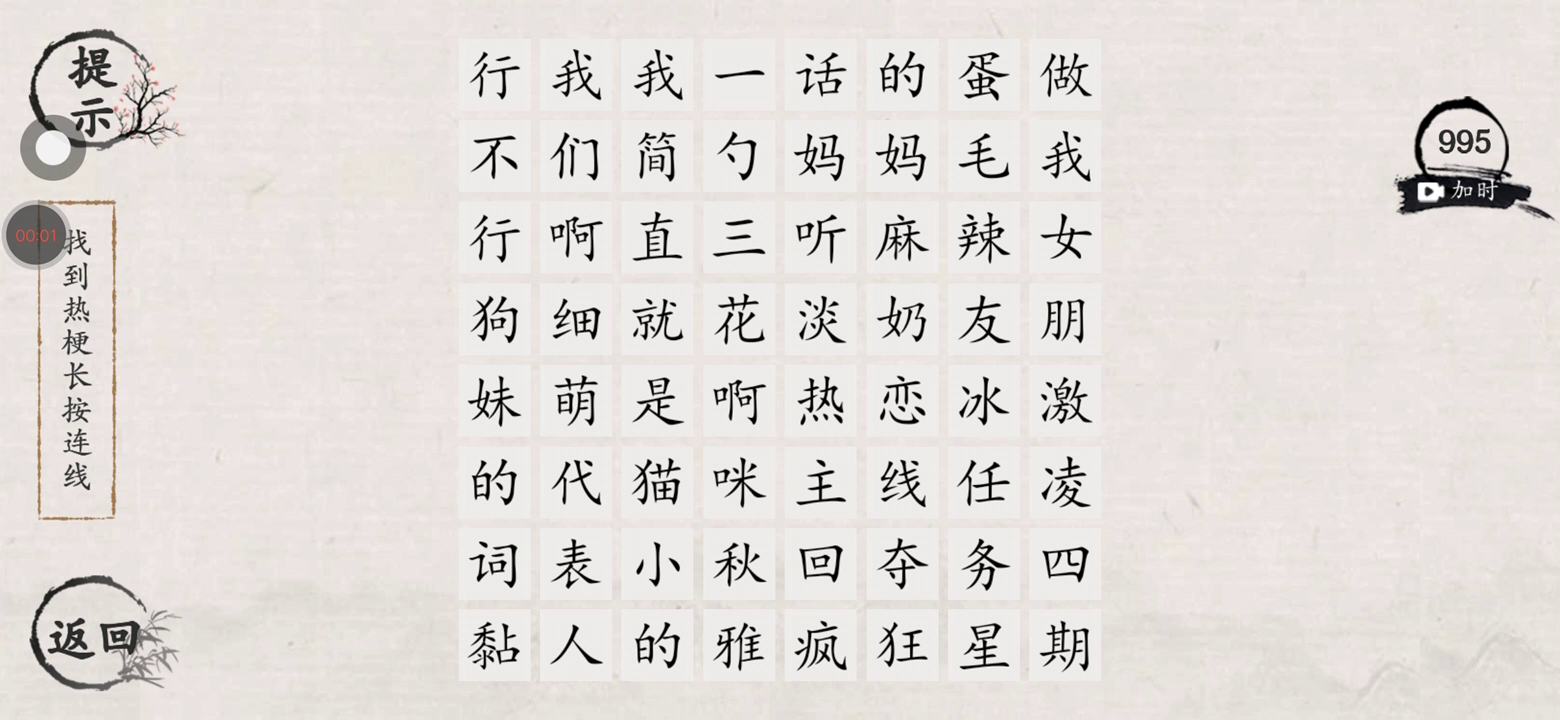 提示
00:01
找到热梗长按连线
返回
行我我一话的蛋做
不们简勺妈妈毛我
行啊直三听麻辣女
狗细就花淡奶友朋
妹萌是啊热恋冰激
的代猫咪主线任凌
词表小秋回夺务四
黏人的雅疯狂星期
995
加时